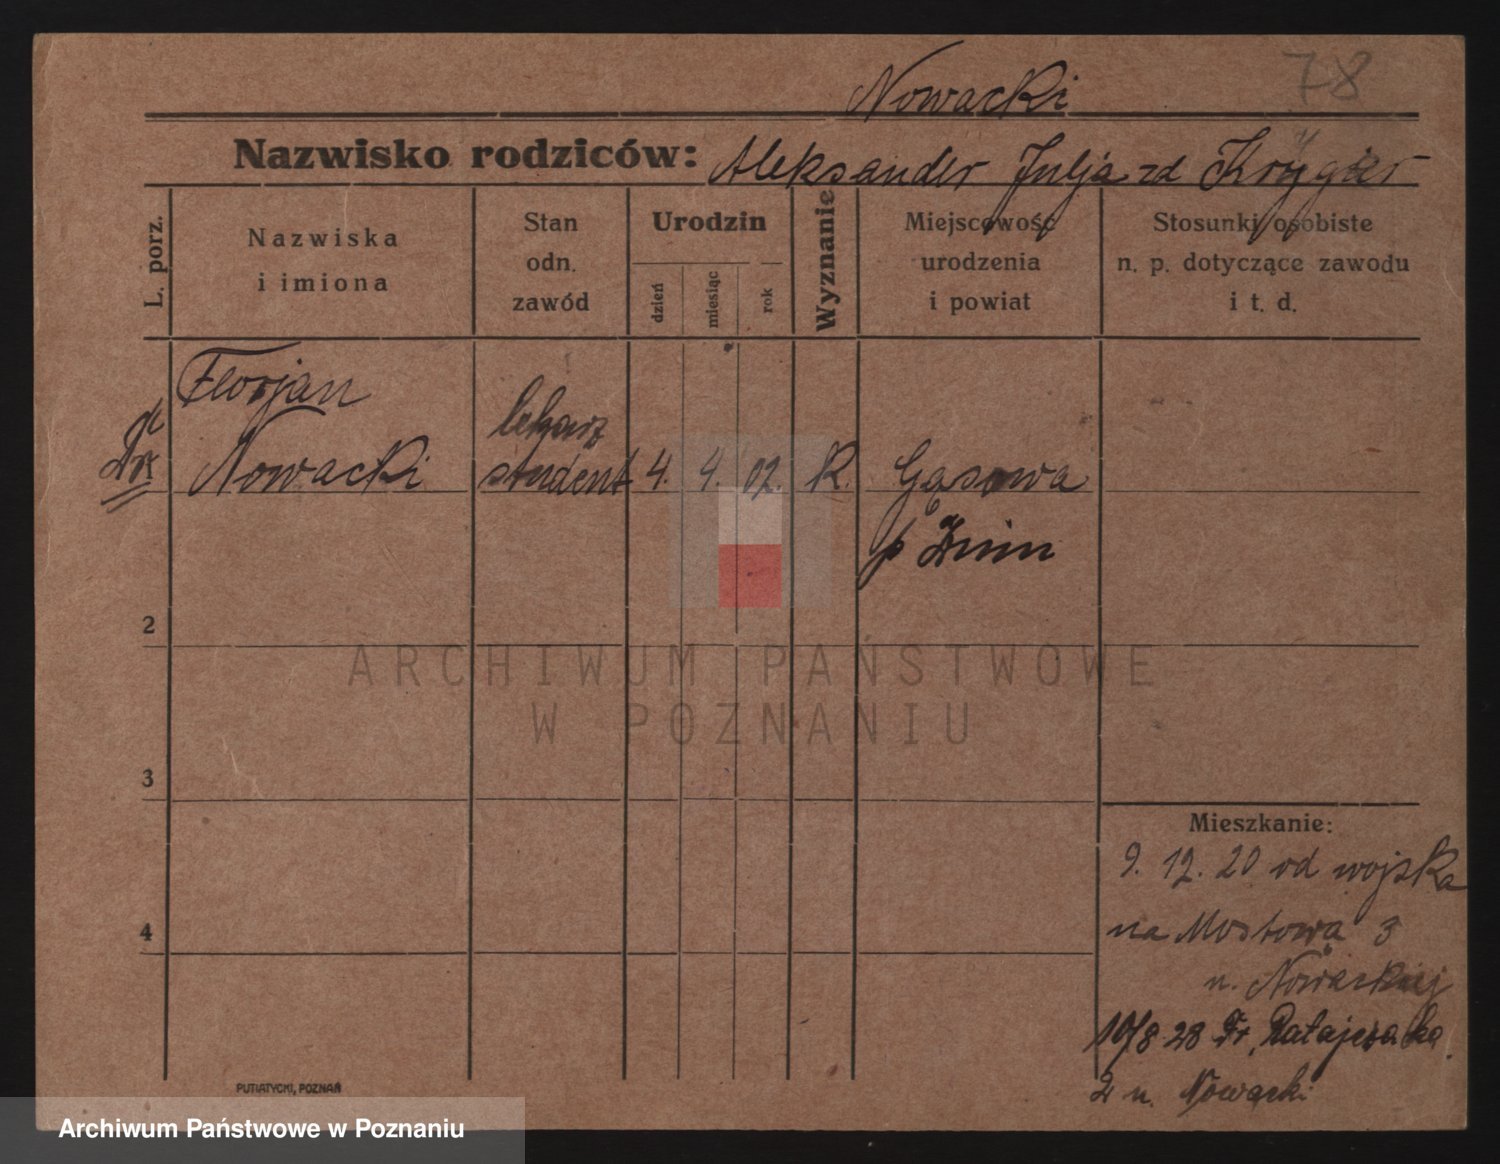 78
Nowacki
Nazwisko rodziców: Aleksander Julja zd Krygier
L. porz.
Nazwiska
i imiona
Stan
odn.
zawód
Urodzin
dzień
miesiąc
rok
Wyznanie
Miejscowość
urodzenia
i powiat
Stosunki osobiste
n. p. dotyczące zawodu
i t. d.
Florjan
lekarz
Nowacki student 4. 4. 02. K. Gąsawa
p Żnin
2
3
4
Mieszkanie:
9. 12. 20 od wojska
na Mostową 3
u. Nowackiej
10/8 28 Fr. Ratajczaka
2 u. Nowacki
PUTIATYCKI, POZNAŃ
ARCHIWUM PAŃSTWOWE
W POZNANIU
Archiwum Państwowe w Poznaniu